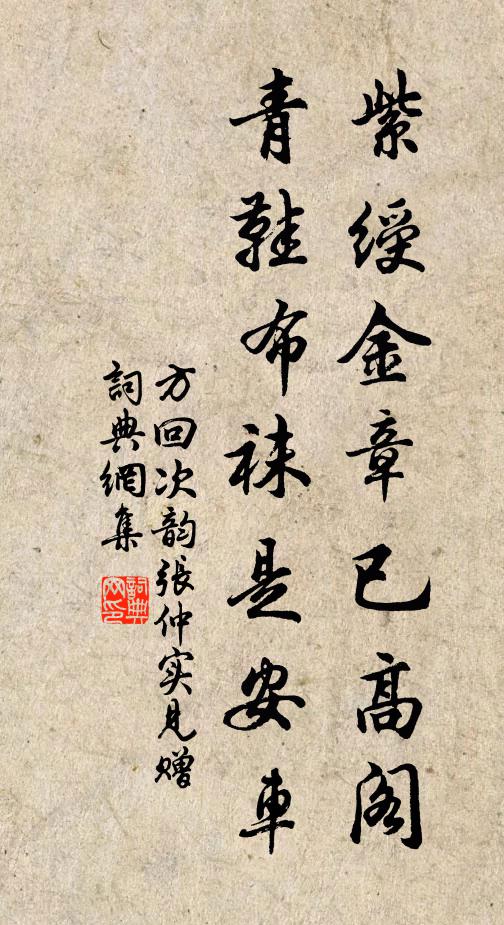 紫綬金章已高閣
青鞋布袜是安車
方回次韵張仲实見赠
詞典網集
詞典